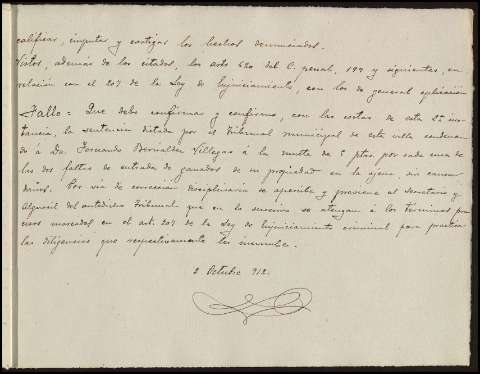 calificar, imputar y castigar los hechos denunciados.
Vistos, además de los citados, los arts 620 del C. penal, 199 y siguientes, en
relación con el 207 de la Ley de Enjuiciamiento, con los de general aplicación
Fallo = Que debo confirmar y confirmo, con las costas de esta 2ª ins-
tancia, la sentencia dictada por el Tribunal municipal de esta villa condenan-
do á Dn. Fernando Villegas á la multa de ptas, por cada una de
las dos faltas de entrada de ganados de su propiedad en la ajena, sin causar
daños. Por via de corrección disciplinaria se apercibe y previene al Secretario y
Alguacil del antedicho Tribunal que en lo sucesivo se atengan á los términos pre-
cisos marcados en el art. 207 de la Ley de Enjuiciamiento criminal para practicar
las diligencias que respectivamente les incumbe.
2 Octubre 912.